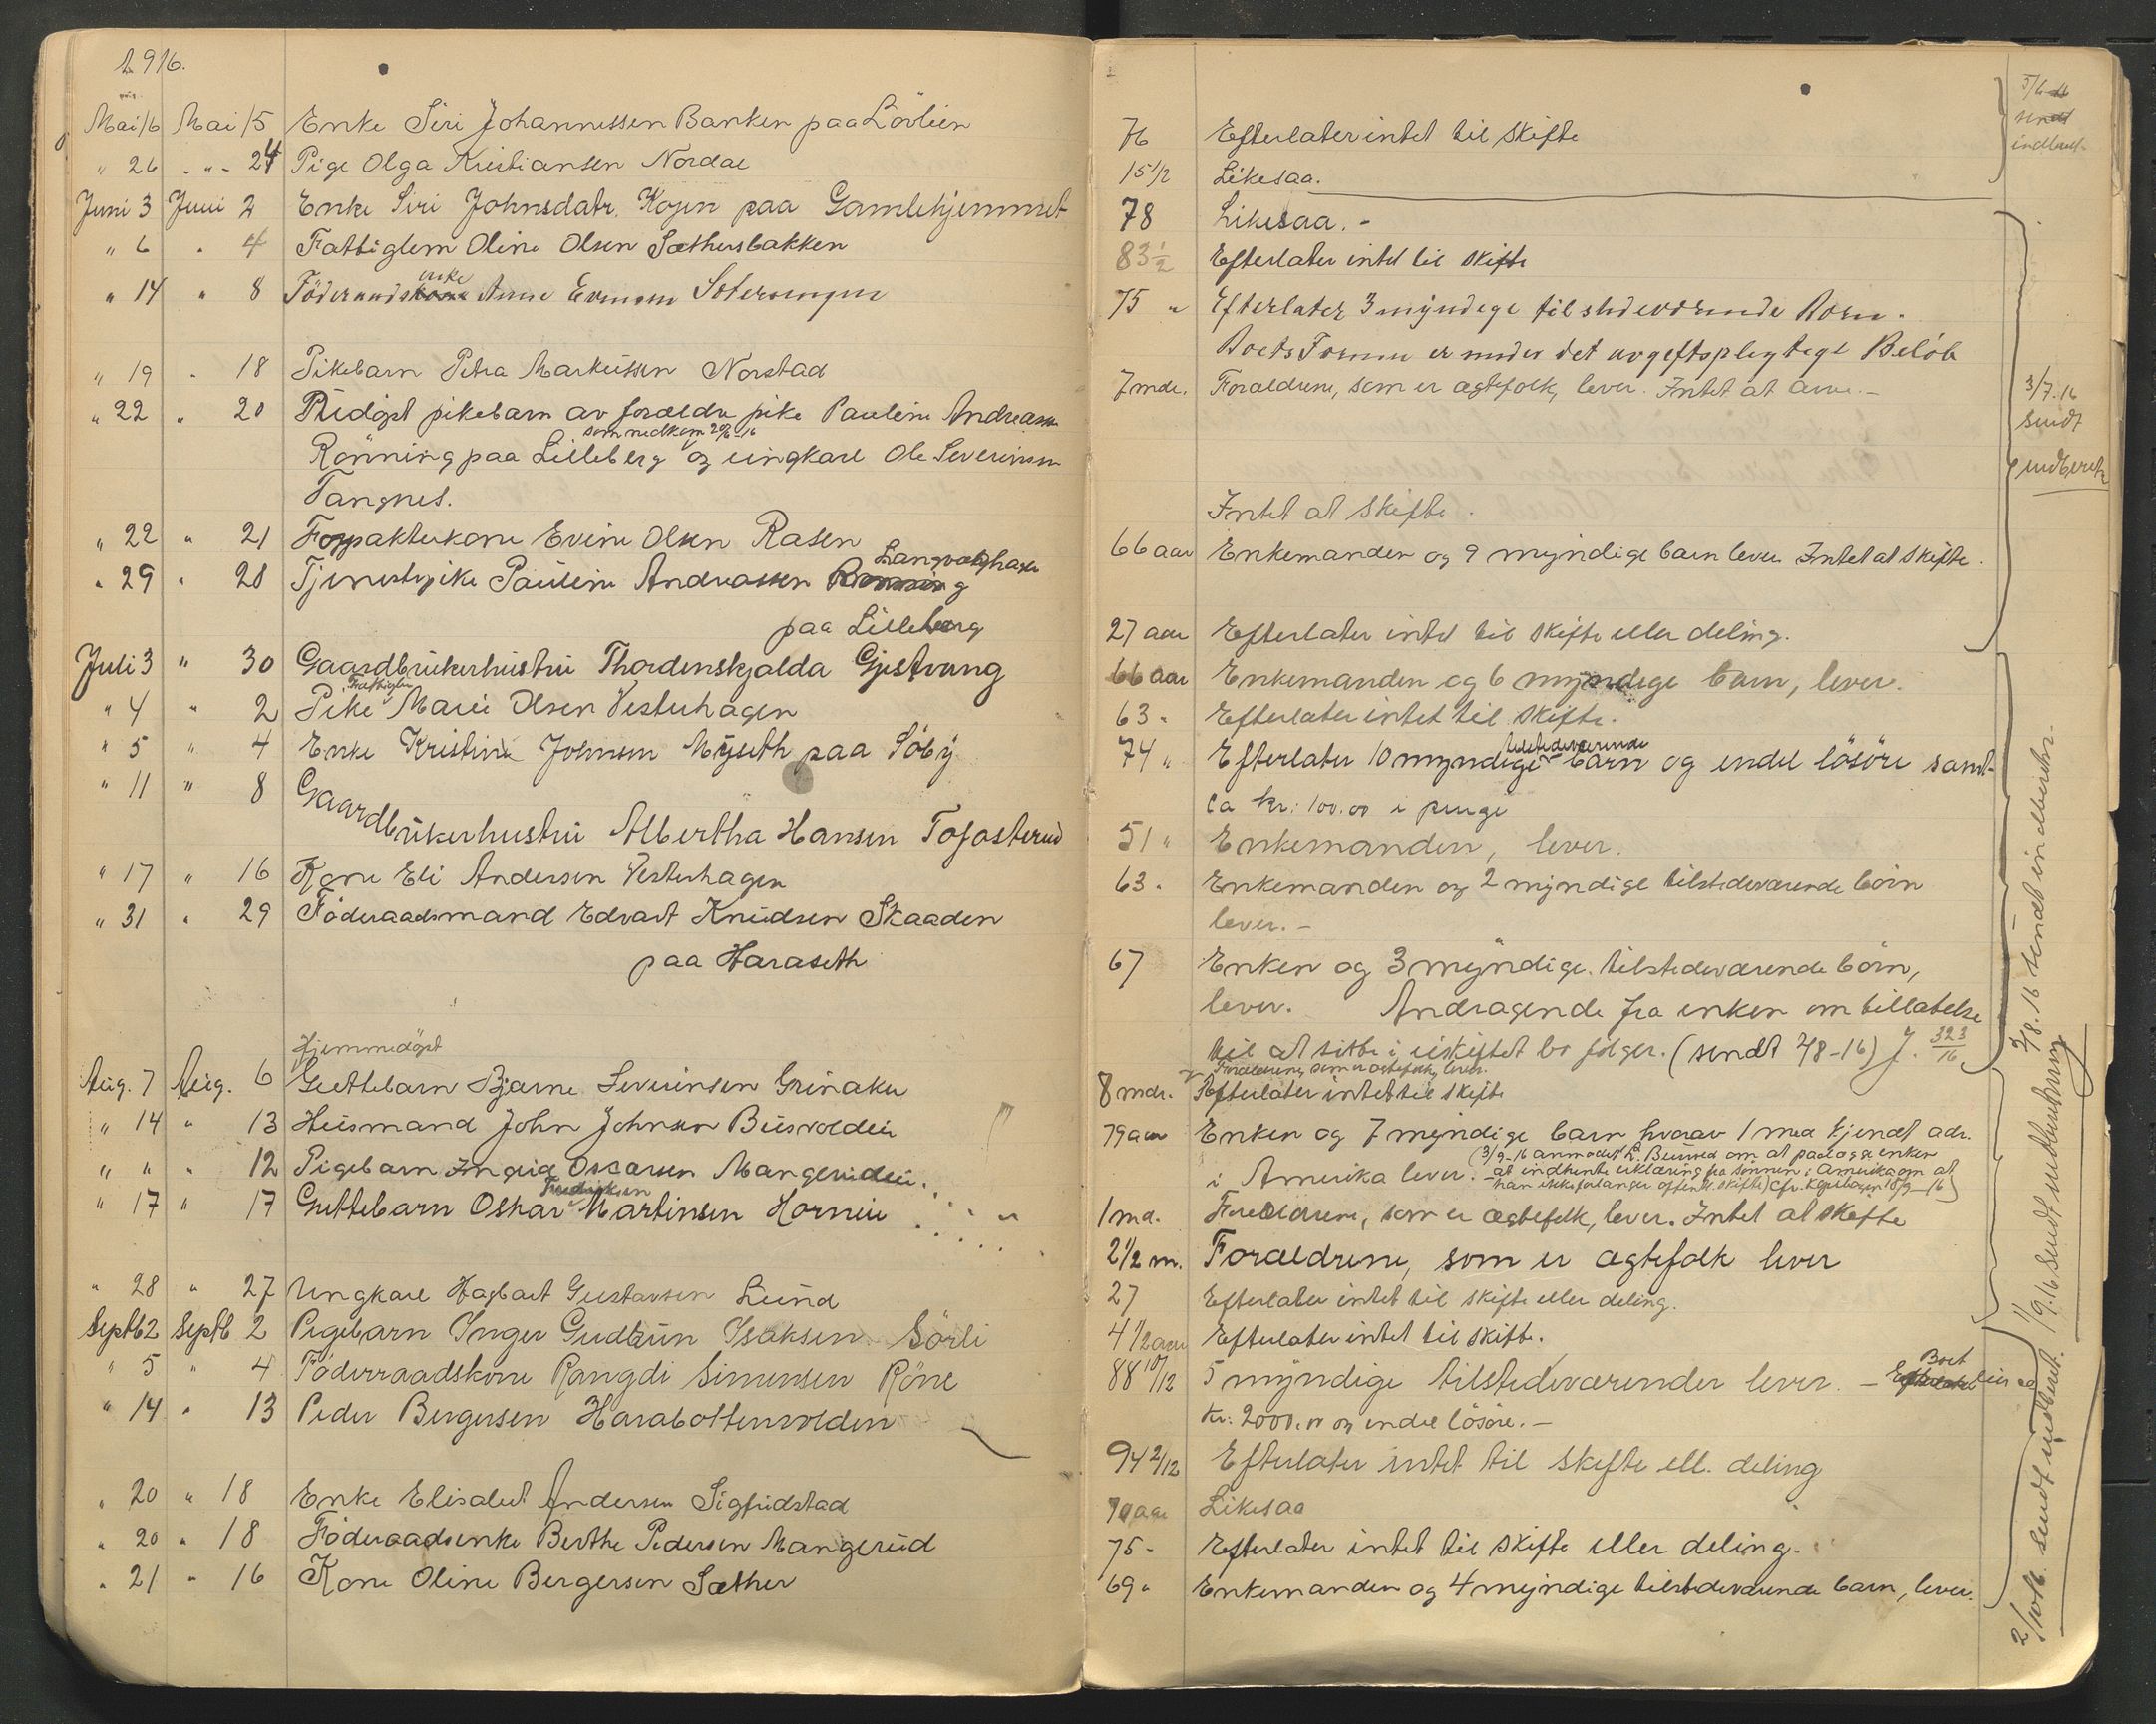 1916.
Mai 16 Mai 15 Enke Siri Johannessen Banken paa Lövlien
" 26 " 24 Pige Olga Kristiansen Nordal
Juni 3 Juni 2 Enke Siri Johnsdatr. Kogen paa Gamlehjemmet
" 6 " 4 Fattiglem Oline Olsen Sætherbakken
enke
" 14 " 8 Föderaadskone Anne Evensen
" 19 " 18 Pikebarn Petra Markussen Norstad
" 22 " 20 Pikebarn av forældre pike Pauline Andreassen
som nedkom 20/6-16
Rönning paa Lilleberg og ungkarl Ole Severinsen
Tangnes.
" 22 " 21 Forpakterkone Evine Olsen Rasen
" 29 " 28 Tjenestepike Pauline Andreassen Rönning
paa Lilleberg
Juli 3 " 30 Gaardbrukerhustru Thordenskjolda Gjestvang
Fattiglem
" 4 " 2 Pike Marie Olsen Vesterhagen
" 5 " 4 Enke Kristine Johnsen Myseth paa Söby
" 11 " 8 Gaardbrukerhustru Albertha Hansen Tofasterud
" 17 " 16 Kone Eli Andersen Vesterhagen
" 31 " 29 Föderaadsmand Edvart Knudsen Skaaden
paa Haraseth
Hjemmedöpt
Aug. 7 Aug. 6 Guttebarn Bjarne Severinsen Grinaker
" 14 " 13 Husmand John Johnsen Busvolden
" " " 12 Pigebarn Ingrid Oscarsen Mangerudeie.
Fredriksen
" 17 " 17 Guttebarn Oskar Martinsen Horneie
" 28 " 27 Ungkarl Hagbart Gustavsen Lund
Septb 2 Septb 2 Pigebarn Inger Gudrun Isaksen Sörli
" 5 " 4 Föderraadskone Rangdi Simensen Röne
" 14 " 13 Peder Bergersen Harabottenvolden
" 20 " 18 Enke Elisabet Andersen Sigfridstad
" 20 " 18 Föderaadsenke Berthe Pedersen Mangerud
" 21 " 16 Kone Oline Bergersen Sæther
76 Efterlater intet til skifte
15 1/2 Likesaa.
78 Likesaa. -
83 1/2 Efterlater intet til skifte
75 " Efterlater 3 myndige tilstedeværende Born.
Boets Formue er under det avgiftspligtige Belöb
7 mdr. Forældrene, som er ægtefolk, lever. Intet at arve. -
Intet at skifte.
66 aar Enkemanden og 9 myndige barn lever. Intet at skifte.
27 aar Efterlater intet til skifte eller deling.
66 aar Enkemanden og 6 myndige barn, lever.
63 " Efterlater intet til skifte.
tilstedeværende
74 " Efterlater 10 myndige barn og endel lösöre samt
ca kr: 100.00 i penge
51 " Enkemanden, lever.
63 " Enkemanden og 2 myndige tilstedeværende börn
lever. -
67 Enken og 3 myndige tilstedeværende börn,
lever. Andragende fra enken om tillatelse
til at sitte i uskiftet bo følger. (sendt 7/8-16) J. 323/16
Forældrene, som er ægtefolk, lever.
8 mdr. Efterlater intet til skifte
79 aar Enken og 7 myndige barn hvorav 1 med kjendt adr.
(3/9-16 anmodet L. Busvold om at paalægge enken
i Amerika lever. - at indhente erklæring fra sønnen i Amerika om at
han ikke forlanger offentl. skifte) cfr. Kopibogen 18/9-16)
1 md. Forældrene, som er ægtefolk, lever. Intet at skifte
2 1/2 m. Forældrene, som er ægtefolk lever
27 Efterlater intet til skifte eller deling.
4 1/2 aar Efterlater intet til skifte.
88 10/12 5 myndige tilstedeværender lever. - Boet eier ca
kr: 2000.00 og endel lösöre. -
94 2/12 Efterlater intet til skifte ell. deling
70 aar Likesaa
75 - Efterlater intet til skifte eller deling.
69 " Enkemanden og 4 myndige tilstedeværende barn, lever.
5/6
sendt
indberet.
3/7.16
sendt
indberetn
7/8.16 sendt indberetn.
1/9.16 sendt indberetning
2/10/16. sendt indberet.